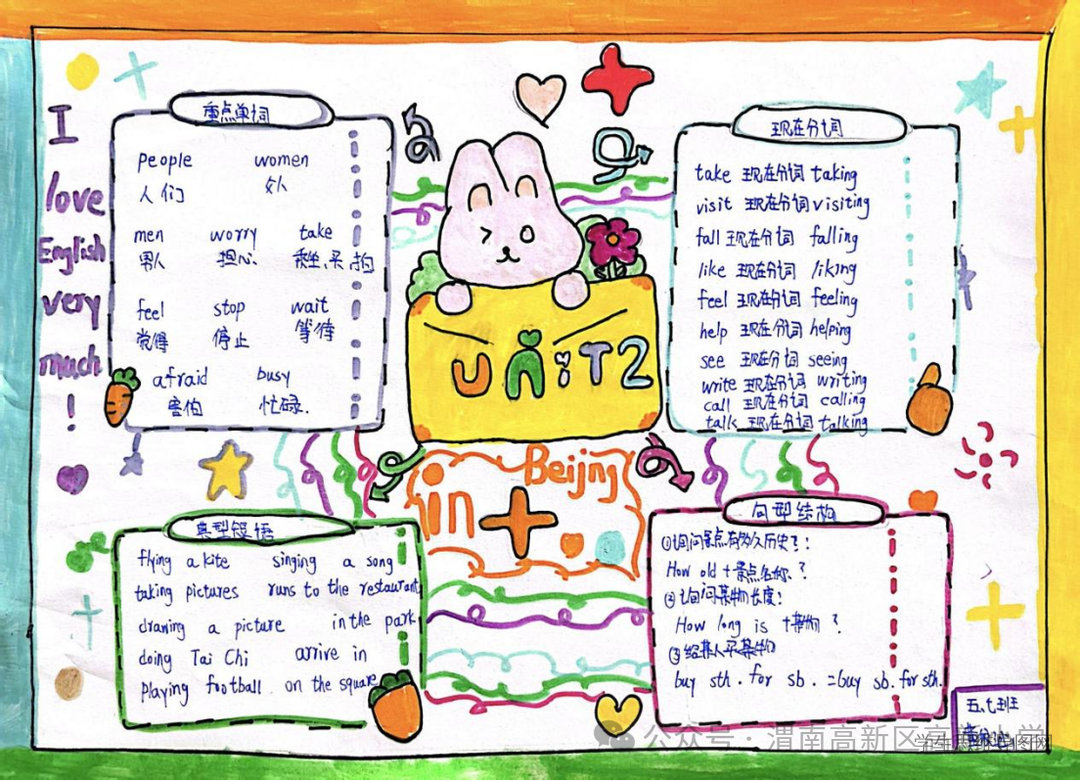 I
love
English
very
much
!
重点单词
people women
人们 女人
men worry take
男人 担心 乘坐、买、拍
feel stop wait
觉得 停止 等待
afraid busy
害怕 忙碌.
UNiT2
in + Beijng
现在分词
take 现在分词 taking
visit 现在分词 visiting
fall 现在分词 falling
like 现在分词 liking
feel 现在分词 feeling
help 现在分词 helping
see 现在分词 seeing
write 现在分词 writing
call 现在分词 calling
talk 现在分词 talking
典型短语
flying a kite singing a song
taking pictures runs to the restaurant
drawing a picture in the park
doing Tai Chi arrive in
playing football on the square
句型结构
①询问景点有多久历史?:
How old + 景点名称.?
②询问某物长度:
How long is +某物?
③给某人买某物
buy sth. for sb. =buy sb. for sth.
五.七班
公众号·渭南高新区